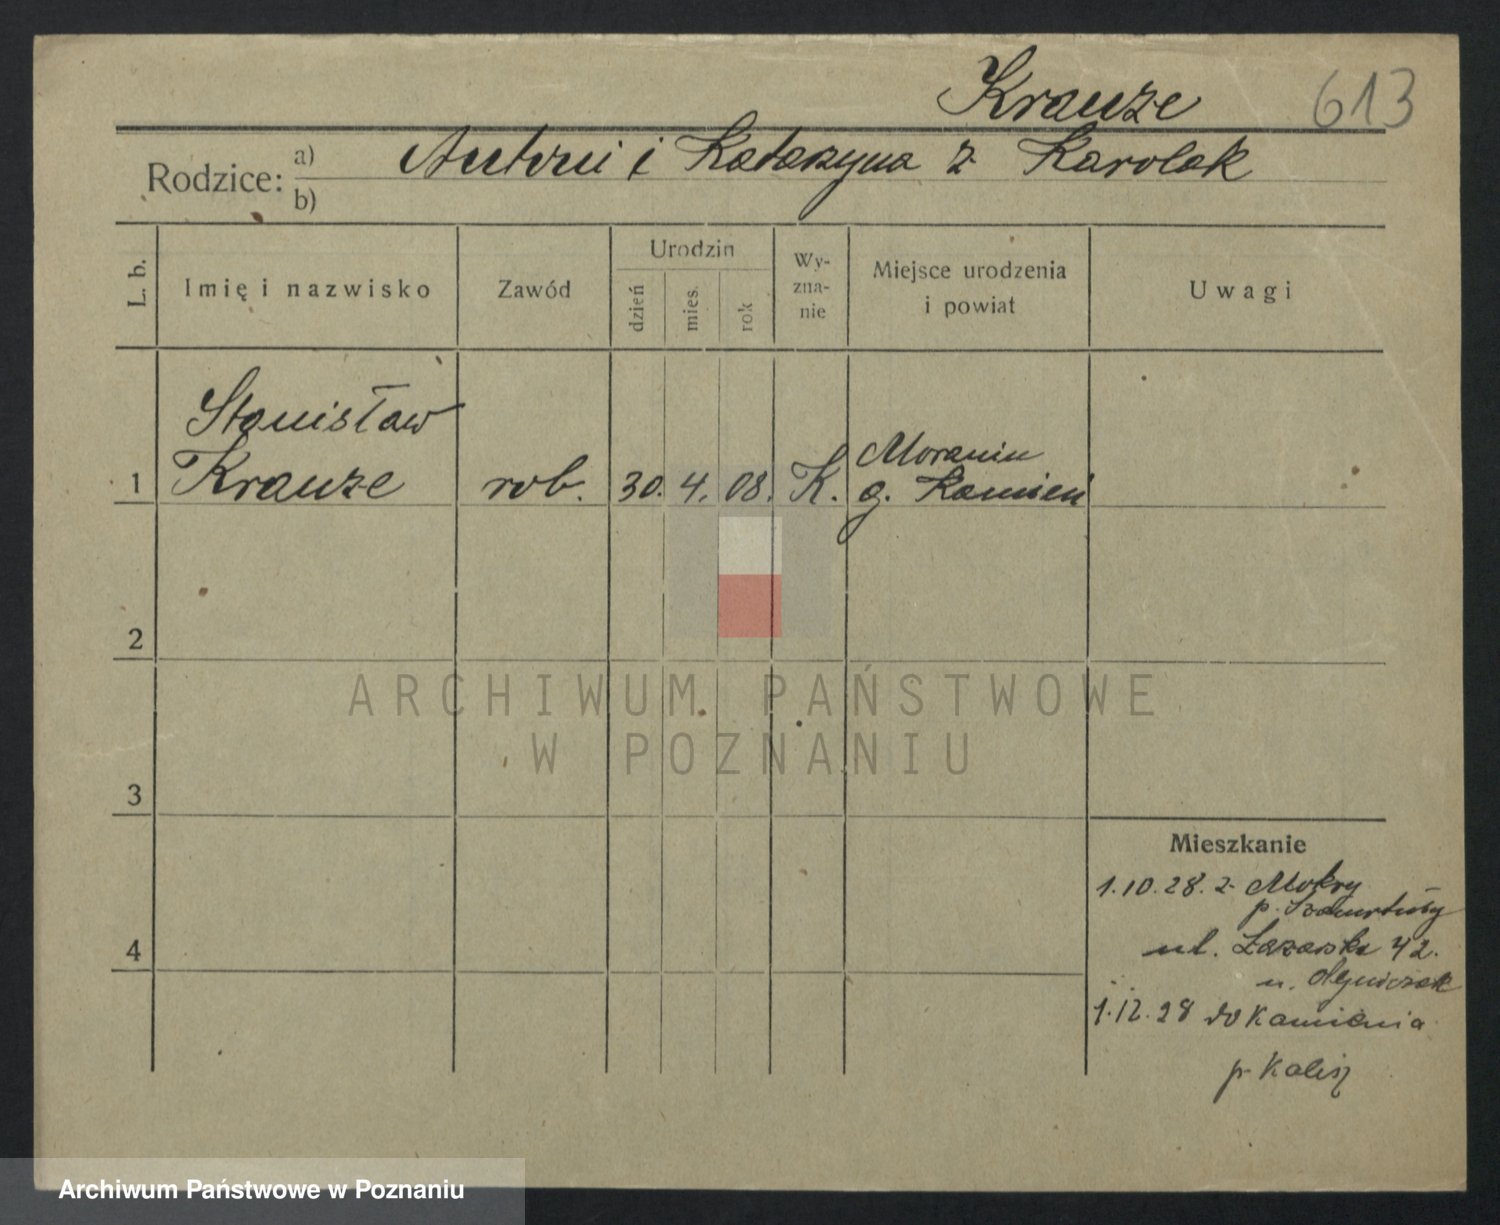 Krauze 613
Rodzice: a) Antoni i Katarzyna z Karolak
b)
L. b.
Imię i nazwisko
Zawód
Urodzin
dzień
mies.
rok
Wy-
zna-
nie
Miejsce urodzenia
i powiat
Uwagi
Stanisław
1 Krauze rob. 30. 4. 08. K.
Moranin
g. Kamień
2
ARCHIWUM PAŃSTWOWE
W POZNANIU
3
Mieszkanie
1.10.28. z Mokry
p. Szamotuły
ul. Łazarska 42.
4
u.
1.12.28 do Kamienia
p Kalisz
Archiwum Państwowe w Poznaniu